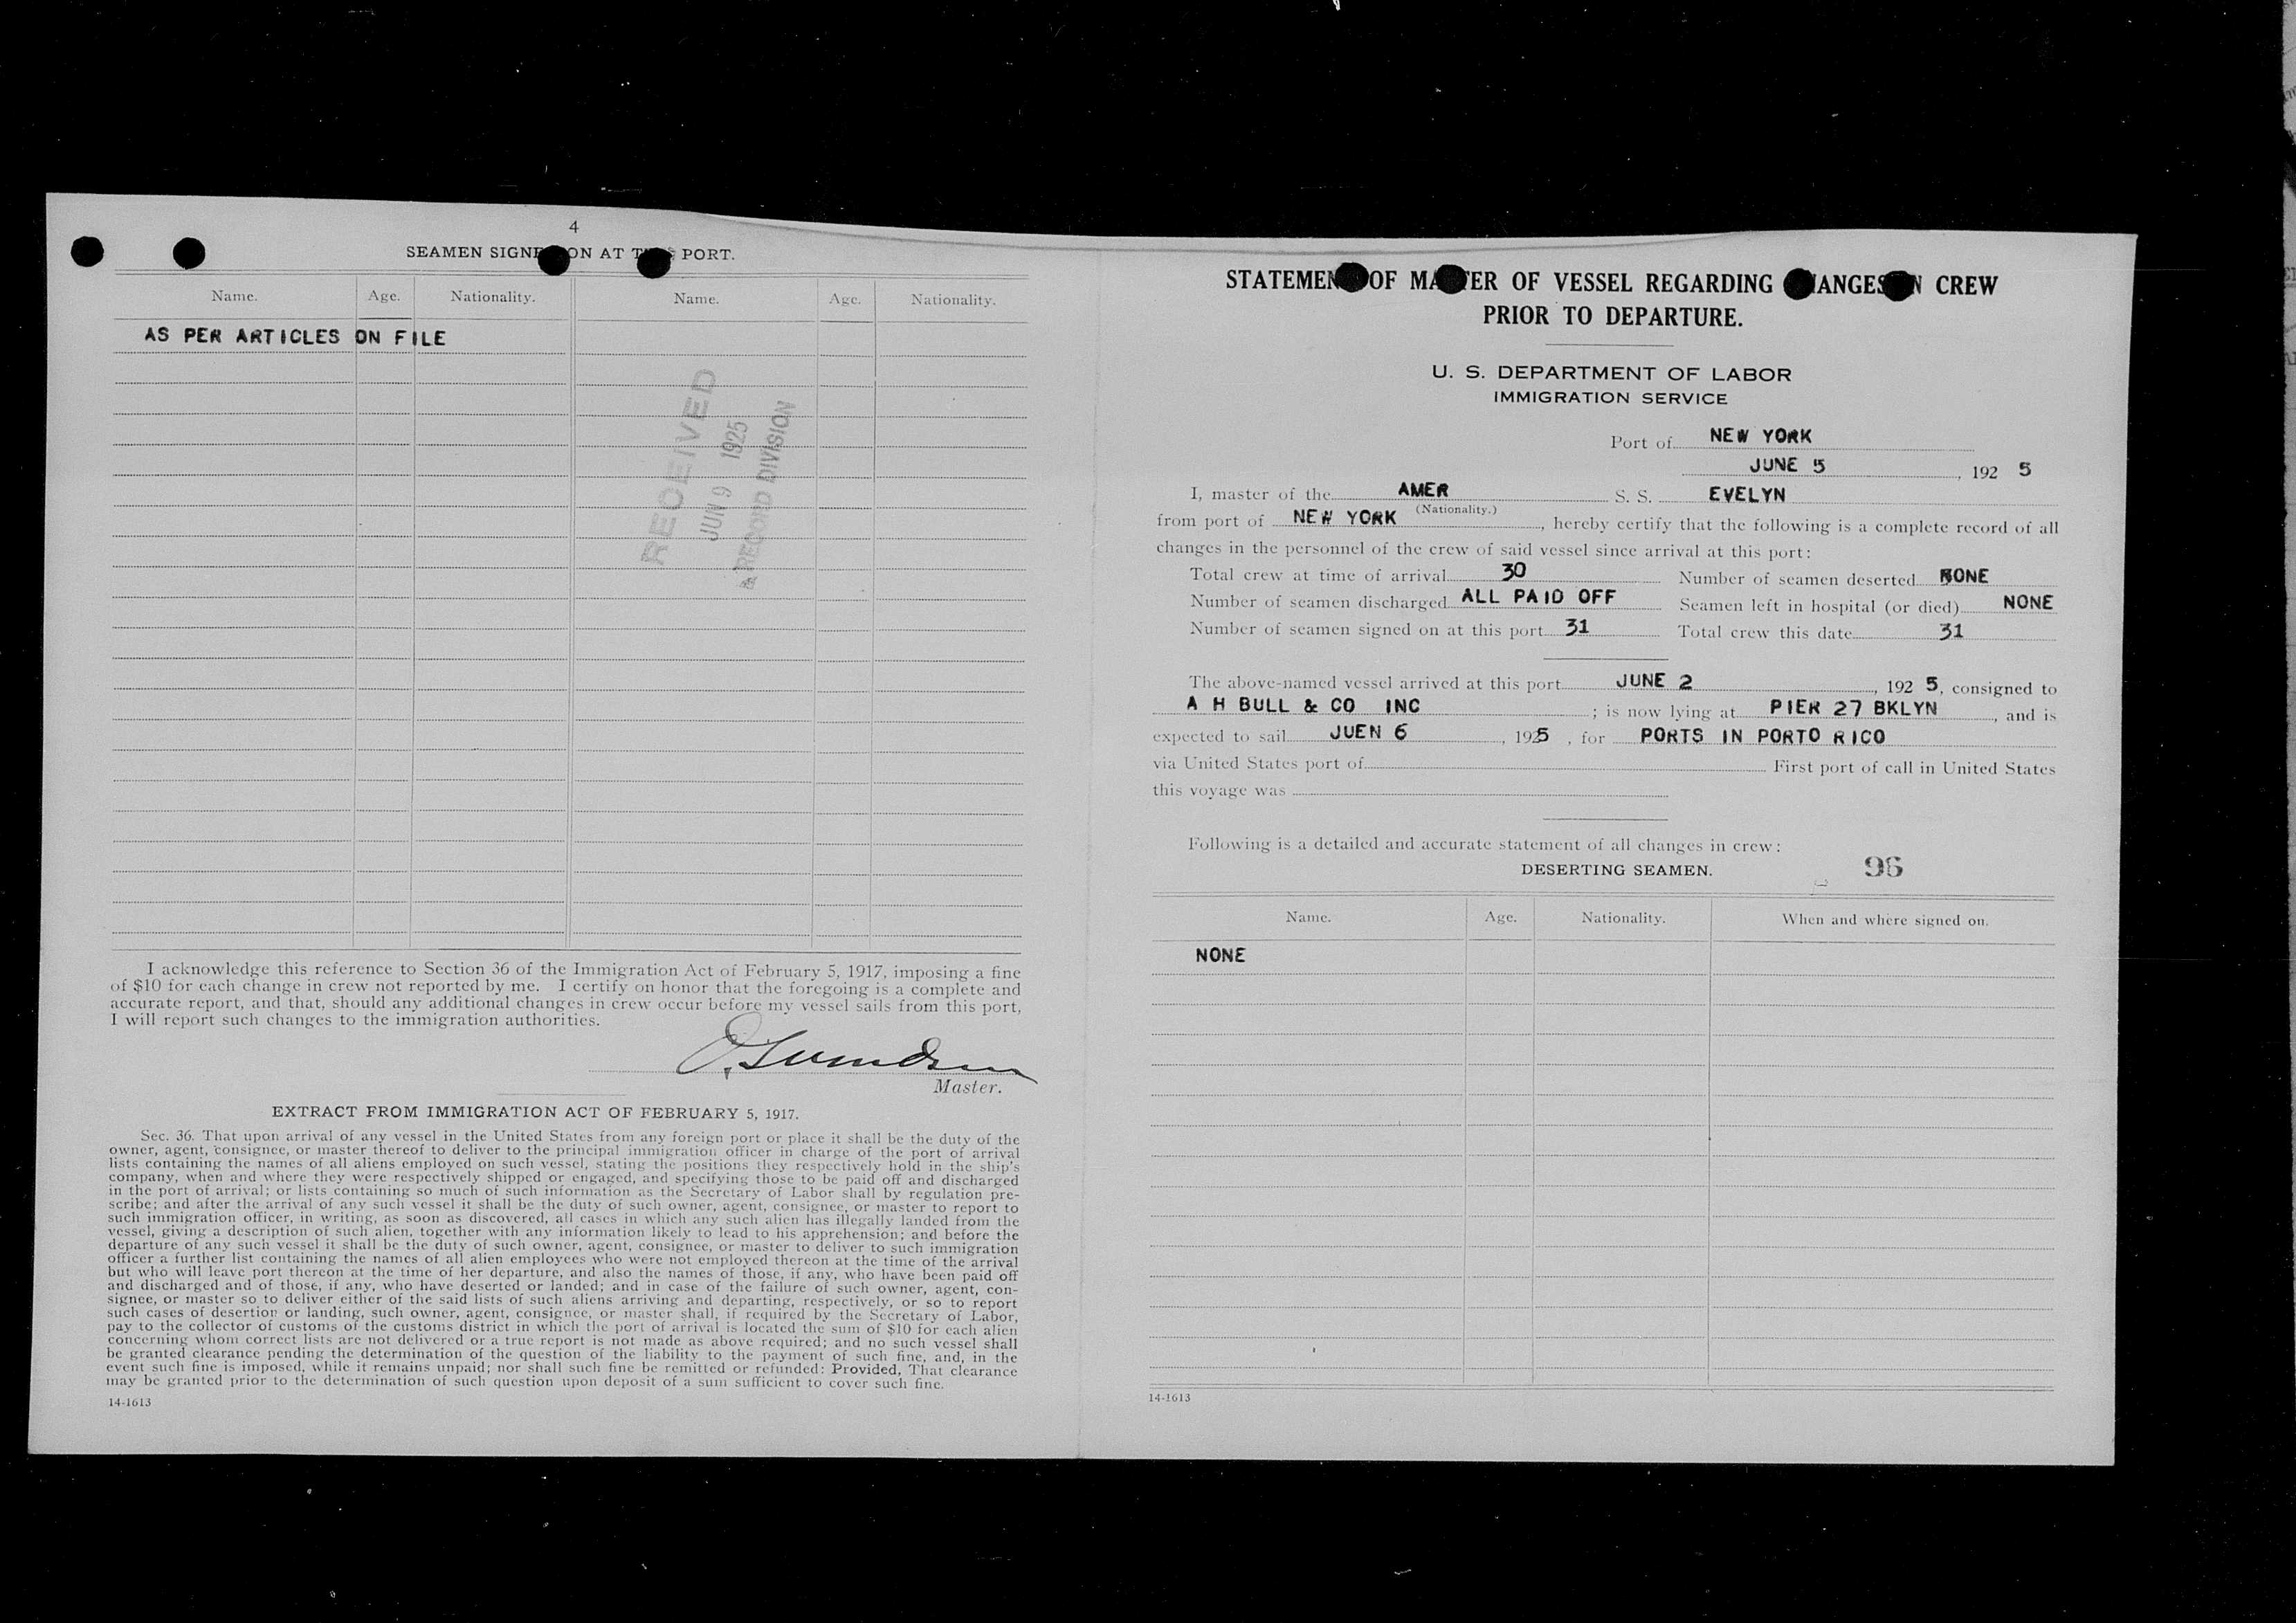 4
SEAMEN SIGNED ON AT THIS PORT.
Name. Age. Nationality. Name. Age. Nationality.
AS PER ARTICLES ON FILE
RECEIVED
JUN 9 1925
& RECORD DIVISION
I acknowledge this reference to Section 36 of the Immigration Act of February 5, 1917, imposing a fine
of $10 for each change in crew not reported by me. I certify on honor that the foregoing is a complete and
accurate report, and that, should any additional changes in crew occur before my vessel sails from this port,
I will report such changes to the immigration authorities.
Master.
EXTRACT FROM IMMIGRATION ACT OF FEBRUARY 5, 1917.
Sec. 36. That upon arrival of any vessel in the United States from any foreign port or place it shall be the duty of the
owner, agent, consignee, or master thereof to deliver to the principal immigration officer in charge of the port of arrival
lists containing the names of all aliens employed on such vessel, stating the positions they respectively hold in the ship's
company, when and where they were respectively shipped or engaged, and specifying those to be paid off and discharged
in the port of arrival; or lists containing so much of such information as the Secretary of Labor shall by regulation pre-
scribe; and after the arrival of any such vessel it shall be the duty of such owner, agent, consignee, or master to report to
such immigration officer, in writing, as soon as discovered, all cases in which any such alien has illegally landed from the
vessel, giving a description of such alien, together with any information likely to lead to his apprehension; and before the
departure of any such vessel it shall be the duty of such owner, agent, consignee, or master to deliver to such immigration
officer a further list containing the names of all alien employees who were not employed thereon at the time of the arrival
but who will leave port thereon at the time of her departure, and also the names of those, if any, who have been paid off
and discharged and of those, if any, who have deserted or landed; and in case of the failure of such owner, agent, con-
signee, or master so to deliver either of the said lists of such aliens arriving and departing, respectively, or so to report
such cases of desertion or landing, such owner, agent, consignee, or master shall, if required by the Secretary of Labor,
pay to the collector of customs of the customs district in which the port of arrival is located the sum of $10 for each alien
concerning whom correct lists are not delivered or a true report is not made as above required; and no such vessel shall
be granted clearance pending the determination of the question of the liability to the payment of such fine, and, in the
event such fine is imposed, while it remains unpaid; nor shall such fine be remitted or refunded: Provided, That clearance
may be granted prior to the determination of such question upon deposit of a sum sufficient to cover such fine.
14-1613
STATEMENT OF MASTER OF VESSEL REGARDING CHANGES IN CREW
PRIOR TO DEPARTURE.
U. S. DEPARTMENT OF LABOR
IMMIGRATION SERVICE
Port of NEW YORK
JUNE 5, 192 5
I, master of the AMER S. S. EVELYN
(Nationality.)
from port of NEW YORK, hereby certify that the following is a complete record of all
changes in the personnel of the crew of said vessel since arrival at this port:
Total crew at time of arrival 30 Number of seamen deserted NONE
Number of seamen discharged ALL PAID OFF Seamen left in hospital (or died) NONE
Number of seamen signed on at this port 31 Total crew this date 31
The above-named vessel arrived at this port JUNE 2, 192 5, consigned to
A H BULL & CO INC; is now lying at PIER 27 BKLYN, and is
expected to sail JUEN 6, 1925, for PORTS IN PORTO RICO
via United States port of First port of call in United States
this voyage was
Following is a detailed and accurate statement of all changes in crew:
DESERTING SEAMEN. 96
Name. Age. Nationality. When and where signed on.
NONE
14-1613